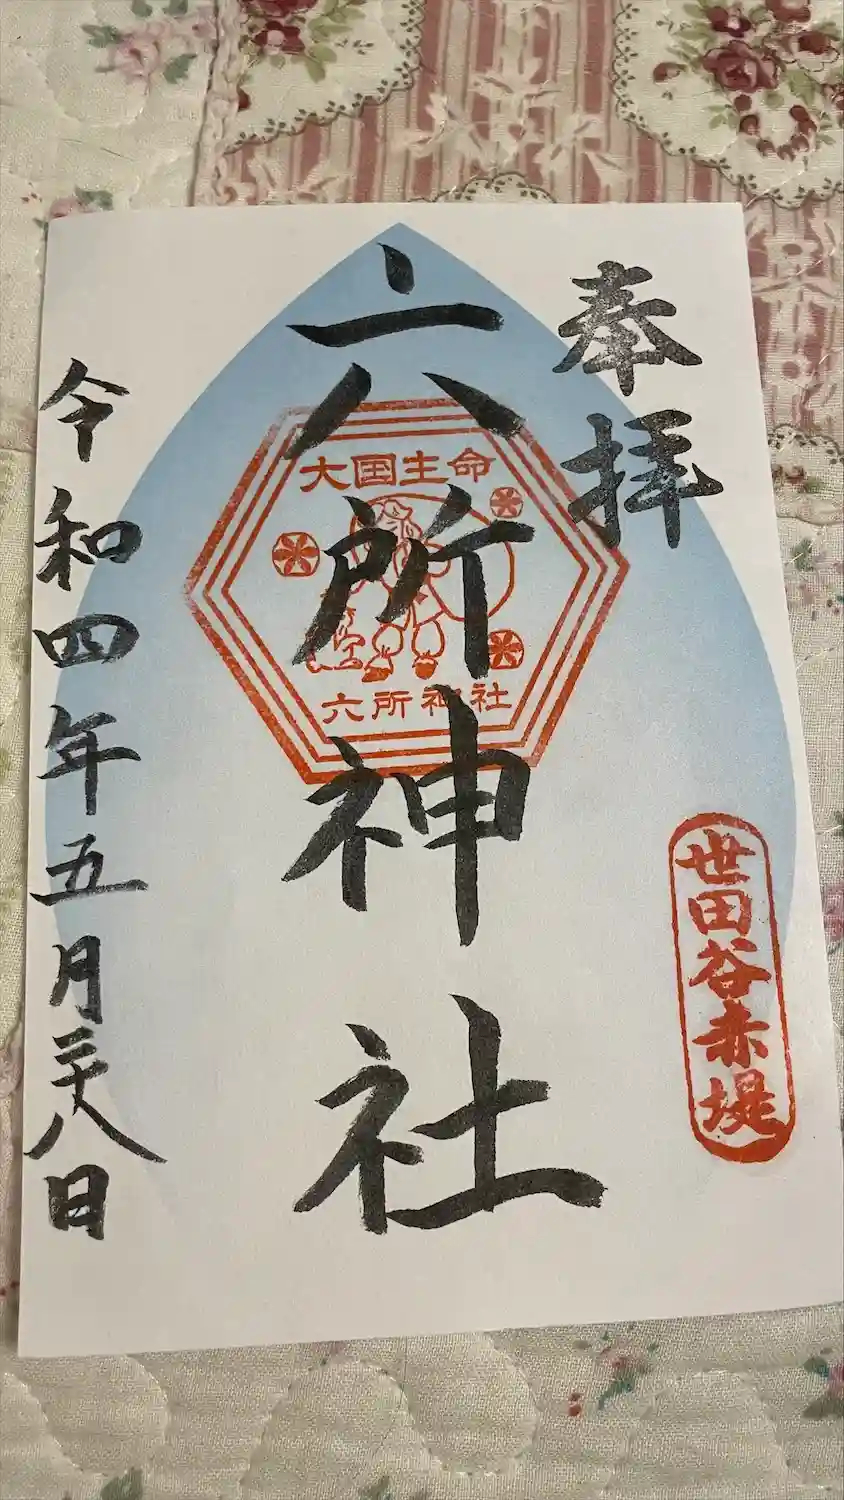 奉拝
世田谷赤堤
六所神社
大国主命
六所神社
令和四年五月二十八日